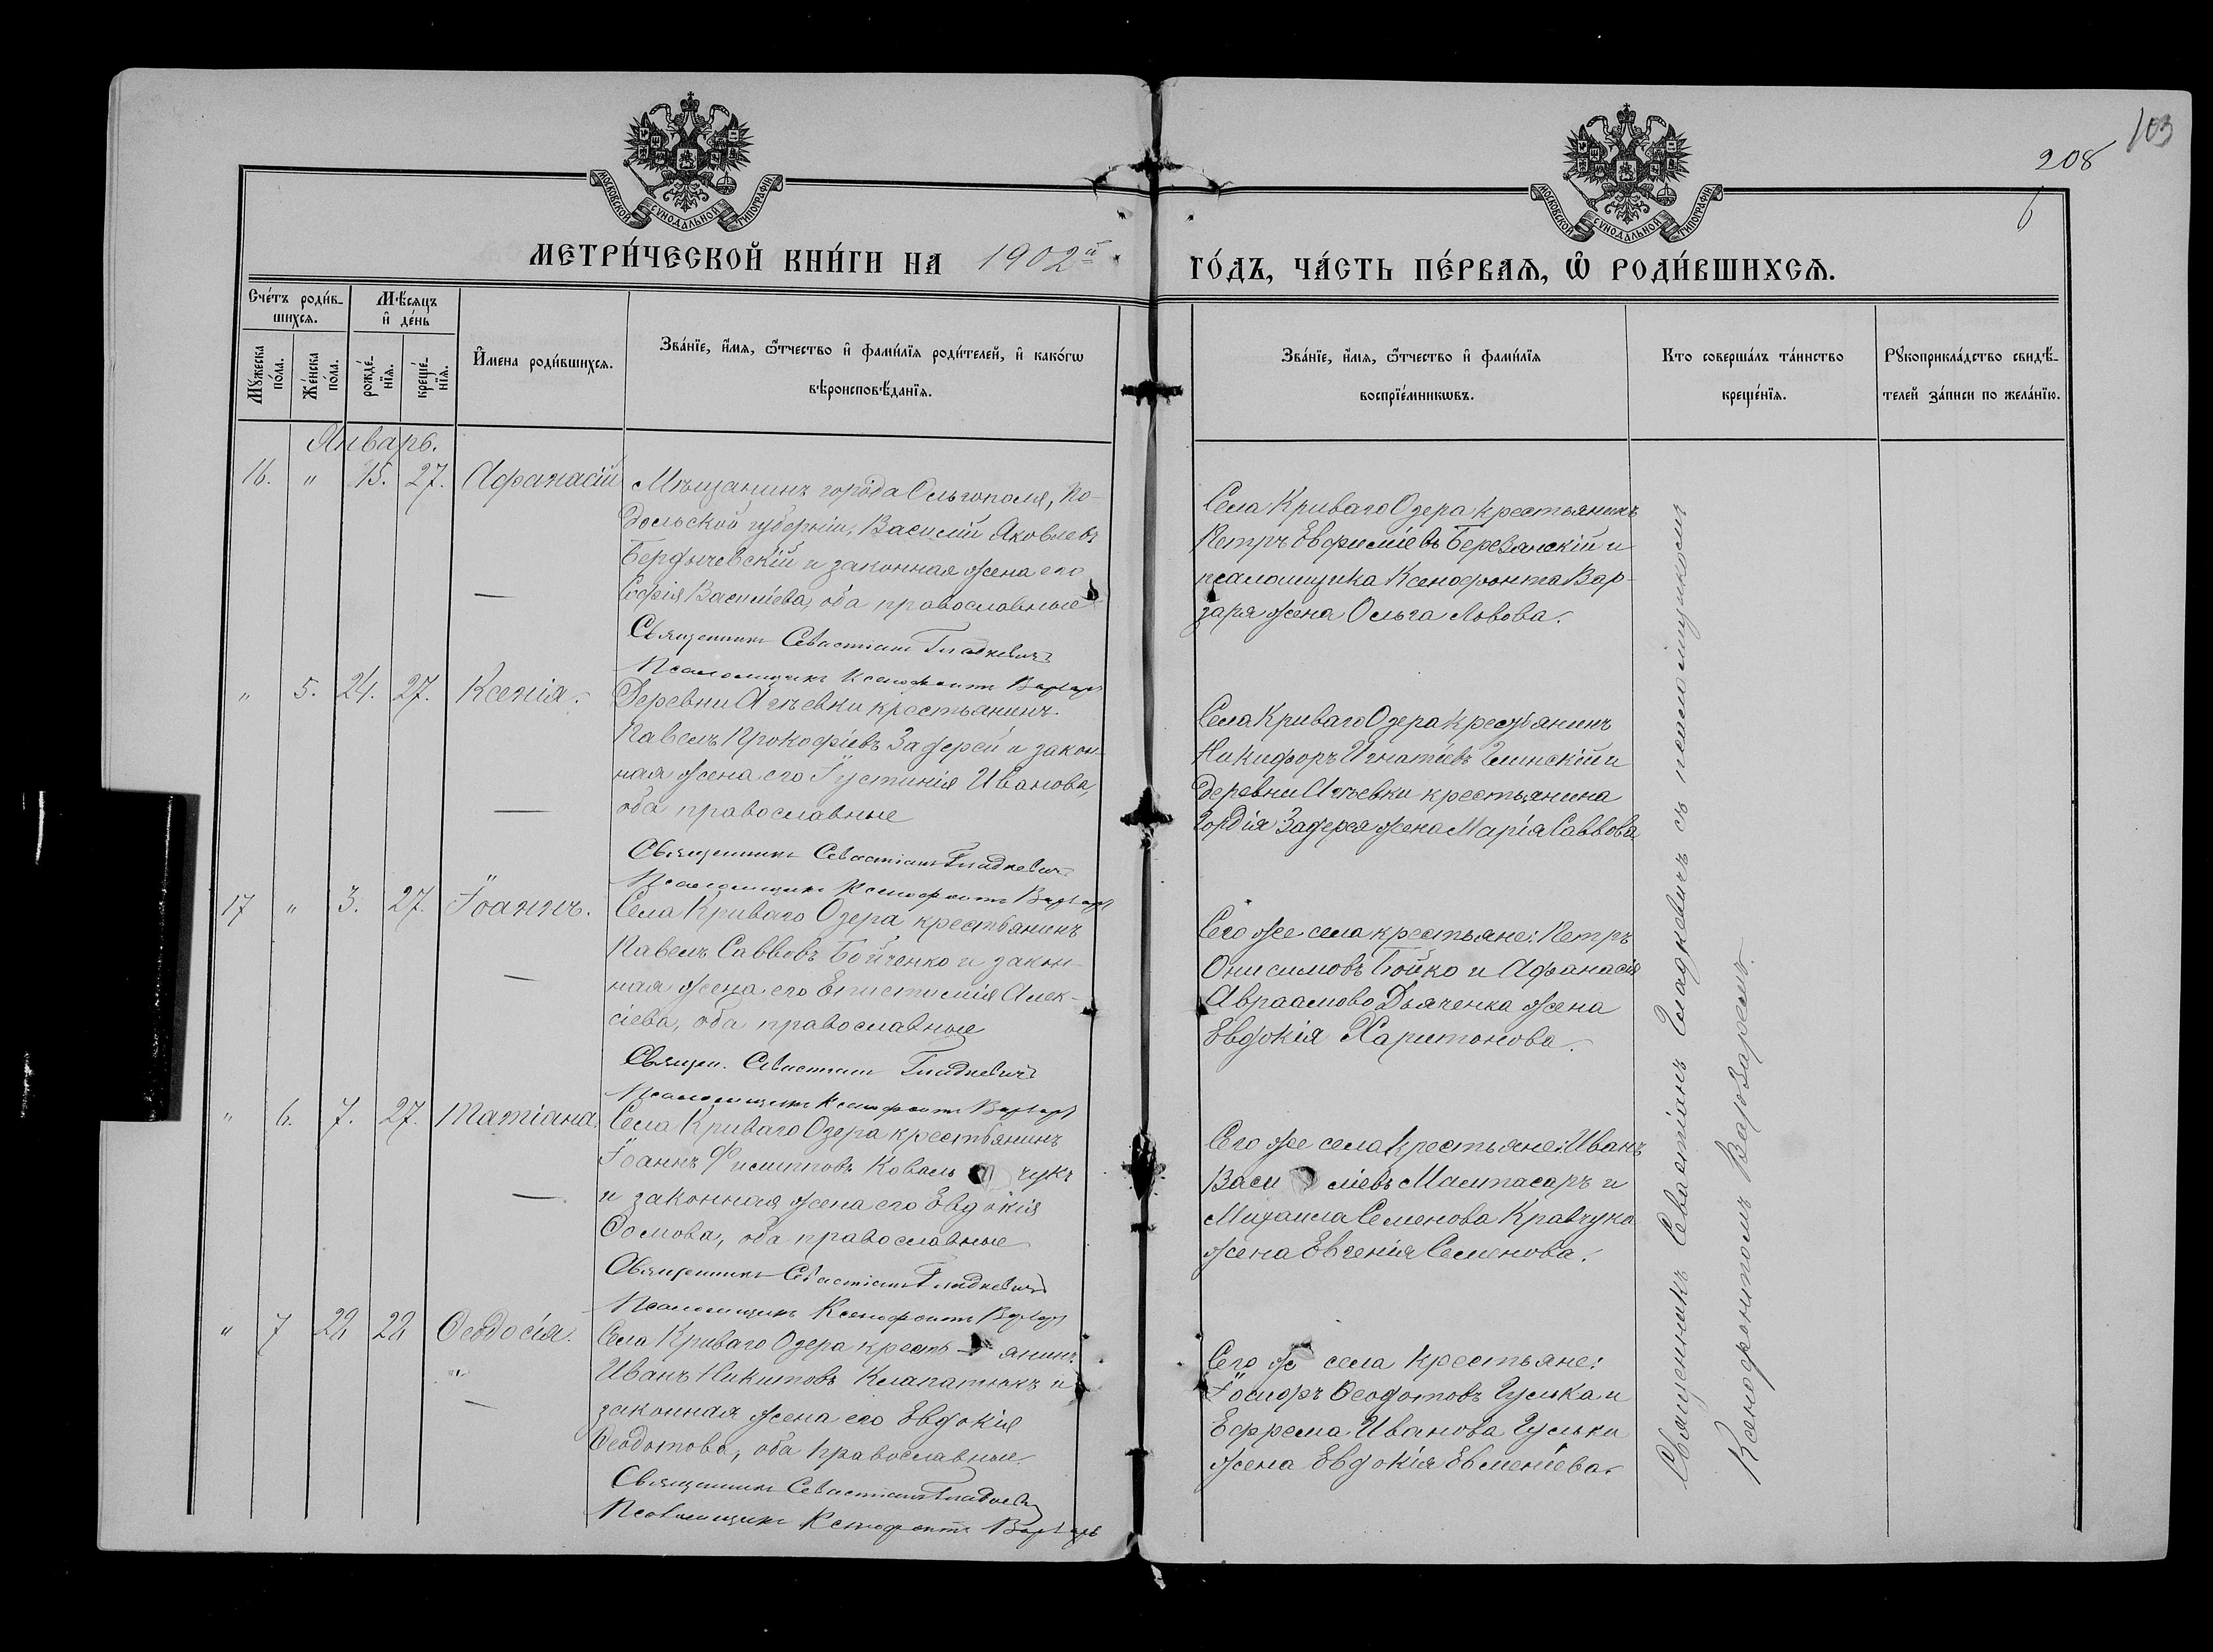 103
208
6
МОСКОВСКОЙ СѴНОДАЛЬНОЙ ТИПОГРАФІИ
МОСКОВСКОЙ СѴНОДАЛЬНОЙ ТИПОГРАФІИ
МЕТРИ́ЧЕСКОЙ КНИ́ГИ НА 1902й
ГО́ДЪ, ЧА́СТЬ ПЕ́РВАѦ, Ѽ РОДИ́ВШИХСѦ.
Сче́тъ роди́в-
шихсѧ.
Мꙋжеска
по́ла.
Же́нска
по́ла.
Мѣ́сѧцъ
и҆ де́нь
рожде́-
нїѧ.
креще́-
нїѧ.
И҆мена роди́вшихсѧ.
Зва́нїе, и҆́мѧ, ѻ҆́тчество и҆ фами́лїѧ роди́телей, и҆ како́гѡ
вѣроисповѣ́данїѧ.
Зва́нїе, и҆́мѧ, ѻ҆́тчество и҆ фами́лїѧ
воспрїе́мникѡвъ.
Кто соверша́лъ та́инство
креще́нїѧ.
Рꙋкоприкла́дство свидѣ́-
телей за́писи по жела́нїю.
Январь.
16. " 15. 27. Афанасій
Мѣщанинъ города Ольгополя, По-
дольской губерніи, Василій Яковлевъ
Бердычевскій и законная жена его
Софія Васильева, оба православные
Священникъ Севастіанъ Гладкевичъ
Псаломщикъ Ксенофонтъ Варзарь
Села Криваго Озера крестьянинъ
Петръ Евфиміевъ Березанскій и
псаломщика Ксенофонта Вар-
заря жена Ольга Львова.
" 5. 24. 27. Ксенія.
Деревни крестьянинъ
Павелъ Прокофіевъ Задерей и закон-
ная жена его Іустинія Иванова,
оба православные
Священникъ Севастіанъ Гладкевичъ
Псаломщикъ Ксенофонтъ Варзарь
Села Криваго Озера крестьянинъ
Никифоръ Игнатіевъ Глинскій и
деревни крестьянина
Гордія Задерея жена Марія Саввова
17 " 3. 27. Іоаннъ.
Села Криваго Озера крестьянинъ
Павелъ Саввовъ Бойченко и закон-
ная жена его Епистимія Алек-
сіева, оба православные
Священ. Севастіанъ Гладкевичъ
Псаломщикъ Ксенофонтъ Варзарь
Сего же села крестьяне: Петръ
Онисимовъ Бойко и Афанасія
Авраамово Дьяченка жена
Евдокія Харитонова.
" 6. 7. 27. Татіана.
Села Криваго Озера крестьянинъ
Іоаннъ Филипповъ Коваль чукъ
и законная жена его Евдокія
Ѳомова, оба православные
Священникъ Севастіанъ Гладкевичъ
Псаломщикъ Ксенофонтъ Варзарь
Сего же села крестьяне: Иванъ
Васи ліевъ и
Михаила Семенова Кравчука
жена Евгенія Семенова.
" 7 22 22 Ѳеодосія.
Села Криваго Озера кресть янинъ
Иванъ Никитовъ Клапатюкъ и
законная жена его Евдокія
Ѳеодотова, оба православные.
Священникъ Севастіанъ Гладкевичъ
Псаломщикъ Ксенофонтъ Варзарь
Сего же села крестьяне:
Ѳеодотовъ Гулька и
Ефрема Иванова Гульки
жена Евдокія Евменіева.
Священникъ Севастіанъ Гладкевичъ съ псаломщикомъ
Ксенофонтомъ Варзаремъ.